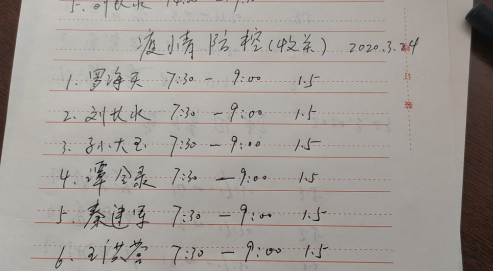 5. 刘长水
疫情防控(收关) 2020.3.24
1. 罗海天 7:30 — 9:00 1.5
2. 刘长水 7:30 — 9:00 1.5
3. 孙大玉 7:30 — 9:00 1.5
4. 谭全录 7:30 — 9:00 1.5
5. 秦建军 7:30 — 9:00 1.5
6. 7:30 — 9:00 1.5